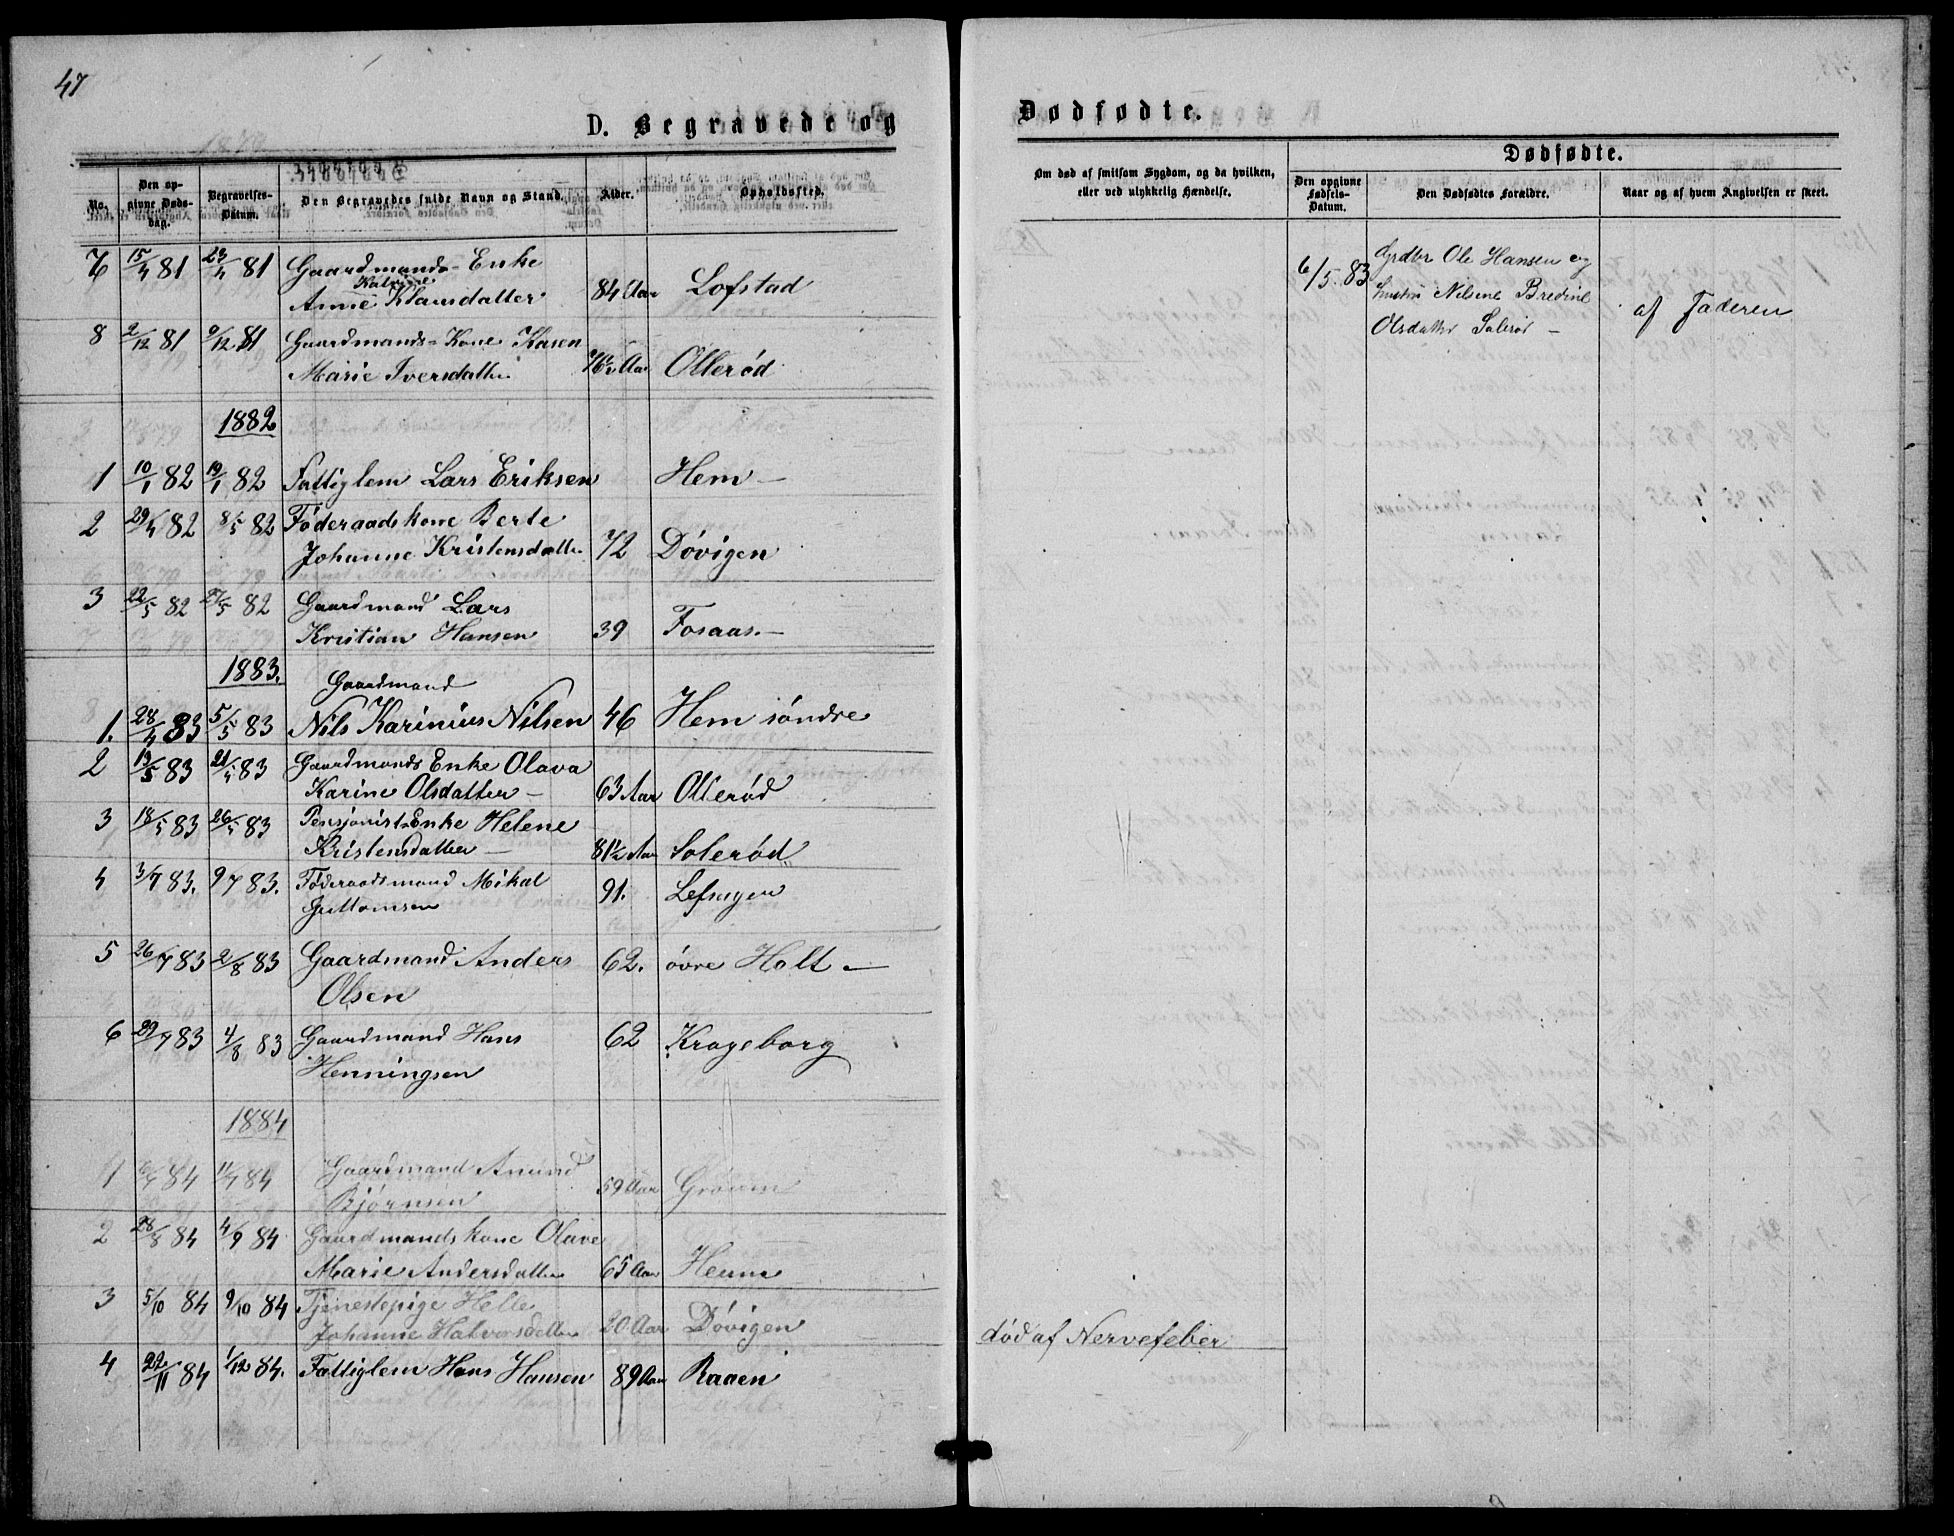 47
D. Begravede og
No.
Den opgivne Dødsdag.
Begravelses-Datum.
Den Begravedes fulde Navn og Stand.
Alder.
Opholdssted.
7 15/4 81 23/4 81 Gaardmands-Enke
Katrine
Anne Klausdatter 84 Aar Lofstad
8 2/12 81 9/12 81 Gaardmands-Kone Karen
Marie Iversdatter 76½ Aar Ollerød
1882
1 10/1 82 19/1 82 Fattiglem Lars Eriksen Hem –
2 29/4 82 8/5 82 Føderaadskone Berte
Johanne Kristensdatter 72 Døvigen
3 22/5 82 27/5 82 Gaardmand Lars
Kristian Hansen 39 Fosaas. –
1883.
Gaardmand
1. 28/4 83 5/5 83 Nils Karinius Nilsen 46 Hem søndre
2 13/5 83 21/5 83 Gaardmands Enke Olava
Karine Olsdatter – 63 Aar Ollerød
3 18/5 83 26/5 83 Pensjonist-Enke Helene
Kristensdatter – 81½ Aar Solerød
4 3/7 83. 9/7 83. Føderaadsmand Mikal
Guttormsen 91. Lefsager
5 26/7 83 2/8 83 Gaardmand Anders 62. øvre Holt –
Olsen
6 29/7 83 4/8 83 Gaardmand Hans 62 Krageborg
Henningsen
1884
1 84 11/7 84 Gaardmand Anund
Bjørnsen 59 Aar Grøum
2 28/8 84 4/9 84 Gaardmandskone Olave
Marie Andersdatter 65 Aar Heum
3 5/10 84 9/10 84 Tjenestepige Helle
Johanne Halvorsdatter 20 Aar Døvigen
4 22/11 84 1/12 84. Fattiglem Hans Hansen 89 Aar Raaen
Dødfødte.
Om død af smitsom Sygdom, og da hvilken,
eller ved ulykkelig Hændelse.
Dødfødte.
Den opgivne Fødsels-Datum.
Den Dødfødtes Forældre.
Naar og af hvem Angivelsen er skeet.
6/5. 83 Grdbr Ole Hansen og
Hustru Nilsine Bredine
Olsdatter Solerød – af Faderen
død af Nervefeber